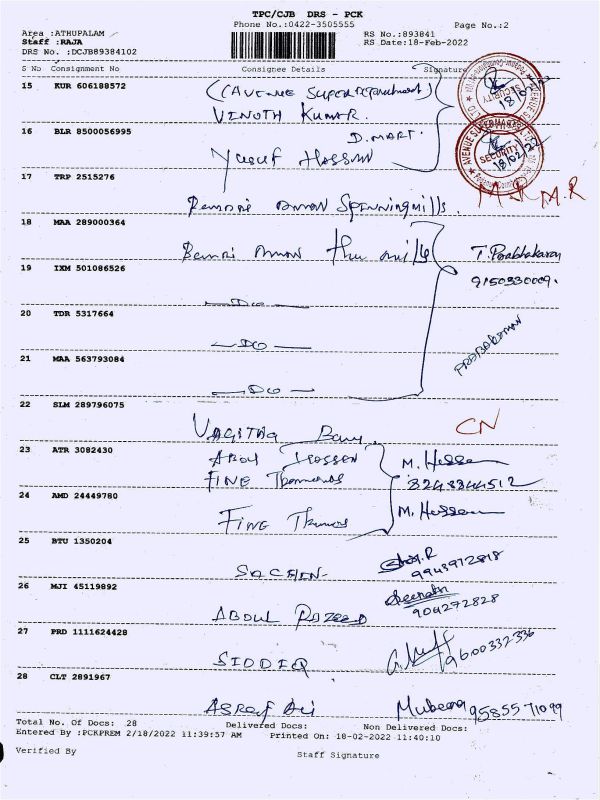 TPC/CJB DRS - PCK
Phone No.:0422-3505555 Page No.:2
Area :ATHUPALAM RS No.:893841
Staff :RAJA RS Date:18-Feb-2022
DRS No. :DCJB89384102
S No Consignment No Consignee Details Signature
15 KUR 606188572
(Avenue Super
VINOTH KUMAR.
SECURITY
18/02/22
16 BLR 8500056995
D.MART.
Yusuf Hassan
AVENUE SUPERMARTS
SECURITY
18/02/22
17 TRP 2515276
Aman Spinning mills. M.R M.R
18 MAA 289000364
Aman mills T. Prabhakaran
9150330009.
19 IXM 501086526
—Do—
20 TDR 5317664
—Do—
PRABAKARAN
21 MAA 563793084
—Do—
22 SLM 289796075
Banu CN
23 ATR 3082430
Abdul Hossen M. Hussen
FINE 8248344512
24 AMD 24449780
FINE M. Hussen
25 BTU 1350204
SACHIN- 9943972818
26 MJI 45119892
ABDUL RAZEED 904272828
27 PRD 1111624428
SIDDIQ 9600332336
28 CLT 2891967
Asraf Ali Mubeena 9585571099
Total No. Of Docs: 28 Delivered Docs: Non Delivered Docs:
Entered By :PCKPREM 2/18/2022 11:39:57 AM Printed On: 18-02-2022 11:40:10
Verified By Staff Signature